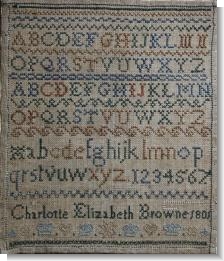 ABCDEFGHIJKLM
OPQRSTVUWXYZ
ABCDEFGHIJKLMN
OPQRSTVUWXYZ
abcdefghijklmnop
qrstvuwxyz.1234567
Charlotte Elizabeth Browne